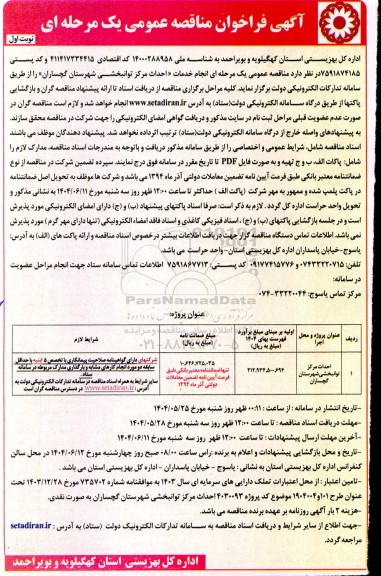 آگهی فراخوان مناقصه عمومی یک مرحله ای
نوبت اول
اداره کل بهزیستی استان کهگیلویه و بویراحمد به شناسه ملی ۱۴۰۰۰۲۸۸۹۵۸ کد اقتصادی ۴۱۱۴۱۷۳۳۴۴۱۵ و کد پستی
۷۵۹۱۸۷۴۱۸۵ در نظر دارد مناقصه عمومی یک مرحله ای انجام خدمات «احداث مرکز توانبخشی شهرستان گچساران» را از طریق
سامانه تدارکات الکترونیکی دولت برگزار نماید. کلیه مراحل برگزاری مناقصه از دریافت اسناد تا ارائه پیشنهاد مناقصه گران و بازگشایی
پاکتها از طریق درگاه سامانه الکترونیکی دولت(ستاد) به آدرس www.setadiran.ir انجام خواهد شد و لازم است مناقصه گران در
صورت عدم عضویت قبلی مراحل ثبت نام در سایت مذکور و دریافت گواهی امضای الکترونیکی را جهت شرکت در مناقصه محقق سازند.
به پیشنهادهای واصله خارج از درگاه سامانه الکترونیکی دولت(ستاد) ترتیب اثر داده نخواهد شد. پیشنهاد دهندگان موظف می باشند
اسناد مناقصه شامل، شرایط عمومی و اختصاصی را از طریق سامانه مذکور دریافت و باتوجه به مندرجات اسناد مناقصه، مدارک لازم را
شامل: پاکات الف، ب و ج تهیه و به صورت فایل PDF تا تاریخ مقرر در سامانه فوق درج نمایند. سپرده تضمین شرکت در مناقصه از نوع
ضمانتنامه معتبر بانکی طبق فرم آیین نامه تضمین معاملات دولتی آذر ماه ۱۳۹۴ می باشد و شرکت ها موظف به تحویل اصل ضمانتنامه
در پاکت پلمپ شده و ممهور به مهر شرکت (پاکت الف) حداکثر تا ساعت ۱۲:۰۰ ظهر روز سه شنبه مورخ ۱۴۰۴/۰۶/۱۱ به نشانی مذکور و
تحویل واحد حراست اداره کل گردد. لازم به ذکر است: صرفا اسناد پاکتهای پیشنهاد (ب) و (ج) دارای امضای الکترونیکی مورد پذیرش
است و در جلسه بازگشایی پاکتهای (ب) و (ج)، اسناد فیزیکی کاغذی و اسناد فاقد امضاء الکترونیکی (تنها دارای مهر گرم) مورد پذیرش
نمی باشد. اطلاعات تماس دستگاه مناقصه گزار جهت دریافت اطلاعات بیشتر درخصوص اسناد مناقصه و ارائه پاکت های (الف) به آدرس:
یاسوج-خیابان پاسداران اداره کل بهزیستی استان- واحد حراست می باشد.
تلفن: ۰۷۴۳۳۲۲۰۷۱۵ و ۰۹۱۷۷۴۱۵۷۷۶ کد پستی: ۷۵۹۱۸۶۷۷۱۳ اطلاعات تماس سامانه ستاد جهت انجام مراحل عضویت
در سامانه:
مرکز تماس یاسوج: ۳۳۲۲۰۰۴۴-۰۷۴
عنوان پروژه:
ردیف
عنوان پروژه و محل اجرا
اولیه بر مبنای مبلغ برآورد فهرست بهای ۱۴۰۴ (مبلغ به ریال)
مبلغ ضمانت نامه (مبلغ به ریال)
شرایط لازم
۱
احداث مرکز توانبخشی شهرستان گچساران
تنها ضمانتنامه معتبر بانکی طبق فرمت آیین نامه تضمین معاملات دولتی آذر ماه ۱۳۹۴
شرکتهای دارای گواهینامه صلاحیت پیمانکاری با تخصص ۵ ابنیه با حداقل
سابقه دو مورد انجام کارهای مشابه و بارگذاری مدارک مربوطه در سامانه
ستاد.
سایر شرایط به همراه اسناد مناقصه در سامانه تدارکات الکترونیکی دولت به
آدرس: www.setadiran.ir در دسترس مناقصه گران است
-تاریخ انتشار در سامانه: از ساعت: ۰۰:۱۱ ظهر روز شنبه مورخ ۱۴۰۴/۰۵/۲۵
-مهلت دریافت اسناد مناقصه: تا ساعت ۱۲:۰۰ ظهر روز سه شنبه مورخ ۱۴۰۴/۰۵/۲۸
-آخرین مهلت ارسال پیشنهادات: تا ساعت ۱۲:۰۰ ظهر روز سه شنبه مورخ ۱۴۰۴/۰۶/۱۱
-تاریخ و محل بازگشایی پیشنهادات و اعلام به برنده راس ساعت ۰۸:۰۰ صبح روز چهارشنبه مورخ ۱۴۰۴/۰۶/۱۲ در محل سالن
کنفرانس اداره کل بهزیستی استان به نشانی: یاسوج - خیابان پاسداران - اداره کل بهزیستی استان می باشد.
-تامین اعتبار: از محل اعتبارات تملک دارایی های سرمایه ای سال ۱۴۰۳ به موافقتنامه شماره ۷۳۵۷۰۲ مورخ ۱۴۰۳/۱۲/۲۸ تحت
عنوان طرح ۱۹۰۴۰۰۴۱۰۱ موضوع کد پروژه ۴۰۳۰۰۹۲ احداث مرکز توانبخشی شهرستان گچساران به صورت نقدی.
-هزینه ۲ بار آگهی روزنامه بر عهده برنده مناقصه می باشد.
-جهت اطلاع از سایر شرایط و دریافت اسناد مناقصه به سامانه تدارکات الکترونیک دولت (ستاد) به آدرس: setadiran.ir
مراجعه گردد.
اداره کل بهزیستی استان کهگیلویه و بویراحمد